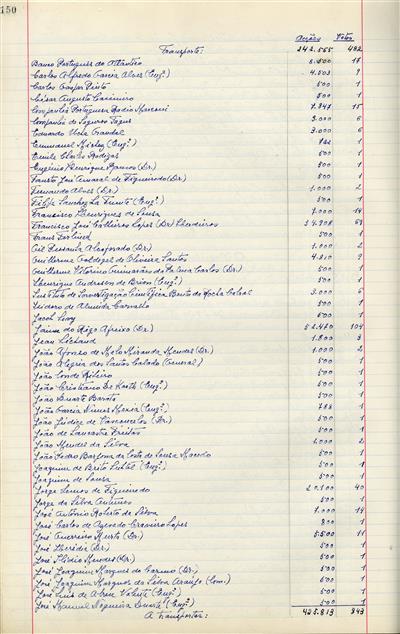 150
Acções Votos
Transporte: 242.555 482
Banco Português do Atlântico 8.500 17
Carlos Alfredo Garcia Alves (Engº) 4.503 9
Carlos Gaspar Pinto 500 1
César Augusto Casimiro 500 1
Companhia Portuguesa Radio Marconi 7.847 15
Companhia de Seguros Tagus 3.000 6
Eduardo Viola Gandal 3.000 6
Emmanuel (Engº) 1
Emile Charles Rodigas 500 1
Eugénio Henrique Ramos (Dr.) 500 1
Fausto José Amaral de Figueiredo (Dr) 500 1
Fernando Alves (Dr.) 1.000 2
Filipe Sanchez La Fuente (Engº) 500 1
Francisco Henriques de Sousa 7.000 14
Francisco José Calheiros Lopes (Dr) Herdeiros 34.908 69
Frans 500 1
Gil Alcoforado (Dr) 1.000 2
Guilherme de Oliveira Santos 4.810 9
Guilherme Vitorino Guimarães da Palma Carlos (Dr.) 500 1
Henrique de Brion (Engº) 500 1
Instituto de Investigação Científica Bento da Rocha Cabral 3.000 6
Isidoro de Almeida Carvalho 500 1
Jacob Levy 600 1
Jaime do Rêgo Afreixo (Dr.) 52.470 104
Jean 1.800 3
João Afonso de Melo Miranda Mendes (Dr.) 1.000 2
João Alegria dos Santos Calado (General) 500 1
João Conde Ribeiro 500 1
João Cristiano De Kuth (Engº) 500 1
João Duarte Barata 500 1
João Garcia Nunes Mexia (Engº) 788 1
João Júdice de Vasconcelos (Dr.) 500 1
João de Lancastre Freitas 500 1
João Mendes da Silva 1.000 2
João Pedro Barbosa da Costa de Sousa Macedo 500 1
Joaquim de Brito (Engº) 500 1
Joaquim de Sousa 500 1
Jorge Lemos de Figueiredo 20.100 40
Jorge da Silva Antunes 500 1
José António Roberto da Silva 7.000 14
José Carlos de Azevedo Craveiro Lopes 800 1
José Guerreiro Murta (Dr.) 5.500 11
José Herédia (Dr.) 500 1
José Ilídio Mendes (Dr.) 500 1
José Joaquim Marques do Carmo (Dr.) 500 1
José Joaquim Marques da Silva Araújo (Com.) 600 1
José Luis de Abreu Valente (Engº) 500 1
José Manuel Nogueira Duarte (Engº) 500 1
A transportar: 425.813 843